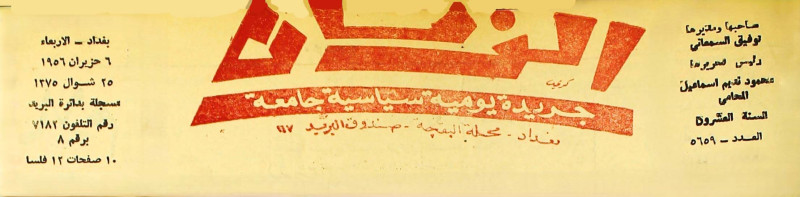 صاحبها ومديرها
توفيق السمعاني
رئيس تحريرها
محمود نديم اسماعيل
المحامي
السنة العشرون
العدد - ٥٦٥٩
الزمان
جريدة يومية سياسية جامعة
بغداد - محلة البقچة - صندوق البريد ١٤٧
بغداد - الاربعاء
٦ حزيران ١٩٥٦
٢٥ شوال ١٣٧٥
مسجلة بدائرة البريد
رقم التلفون ٧١٨٢
برقم ٨
١٠ صفحات ١٢ فلسا